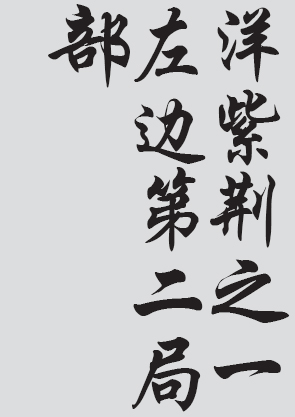 洋紫荆之一
左边第二局
部